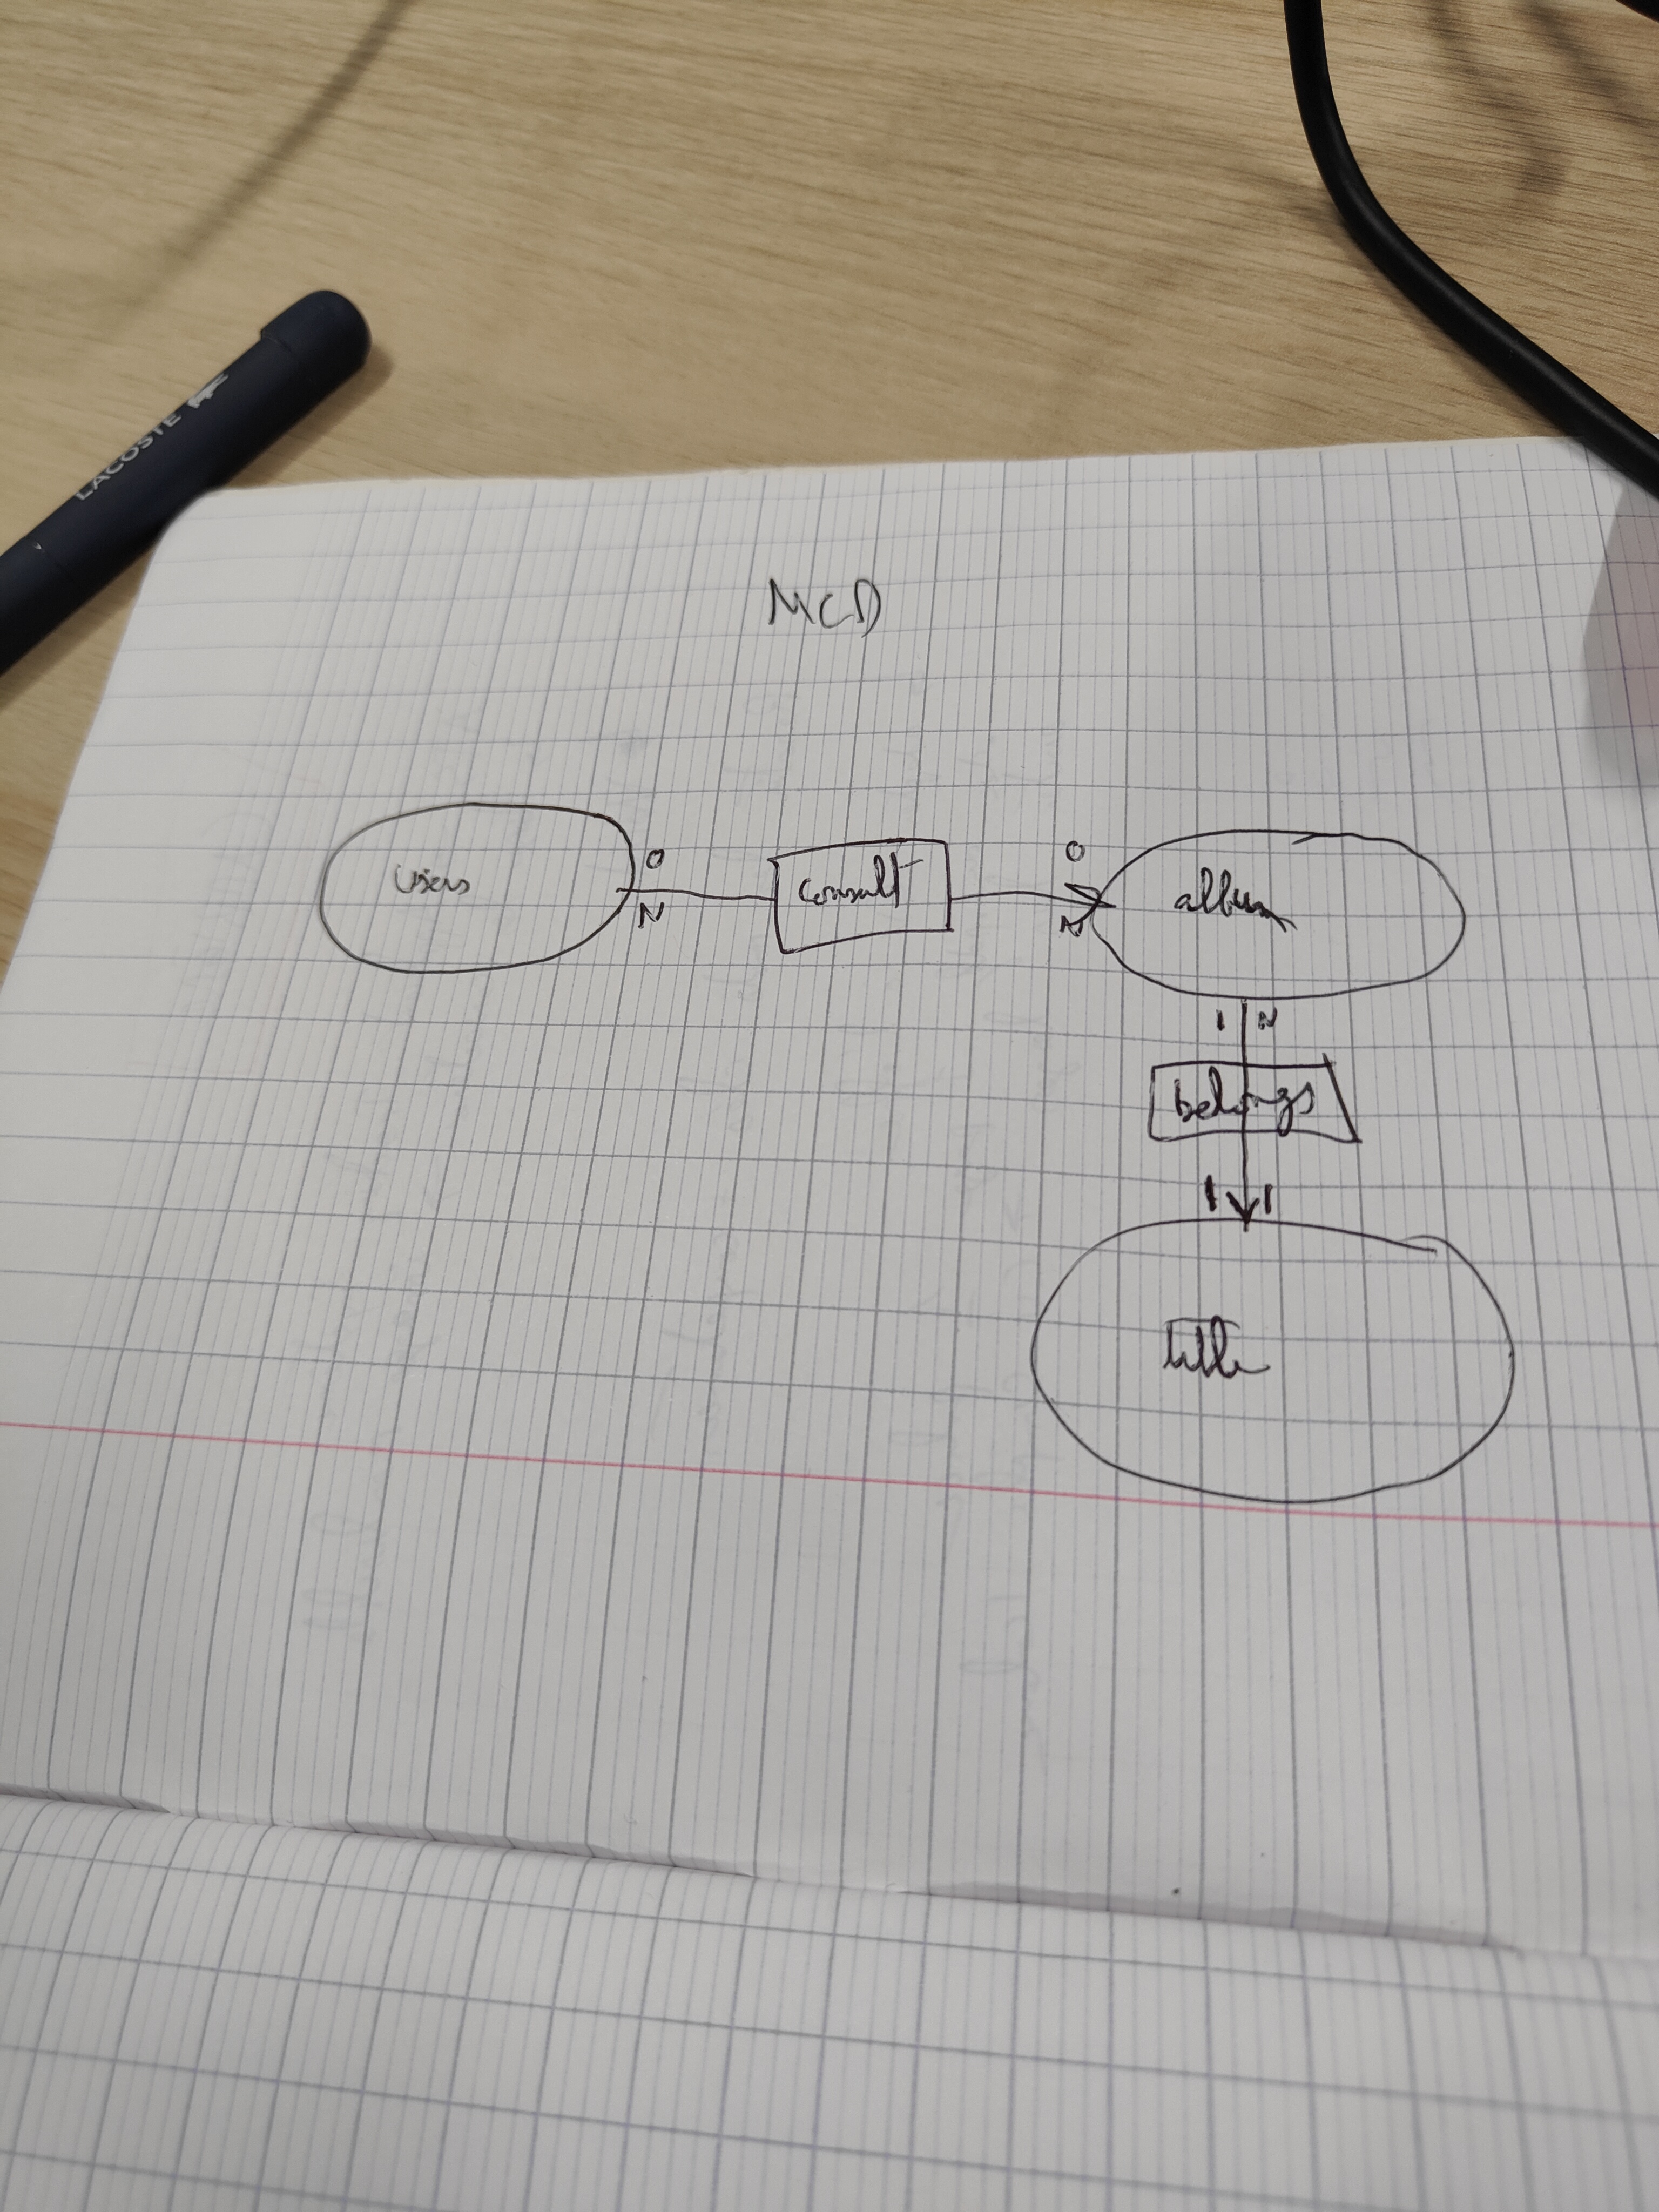 LACOSTE
MCD
users
0
N
consult
0
N
album
1 N
belongs
1 1
title